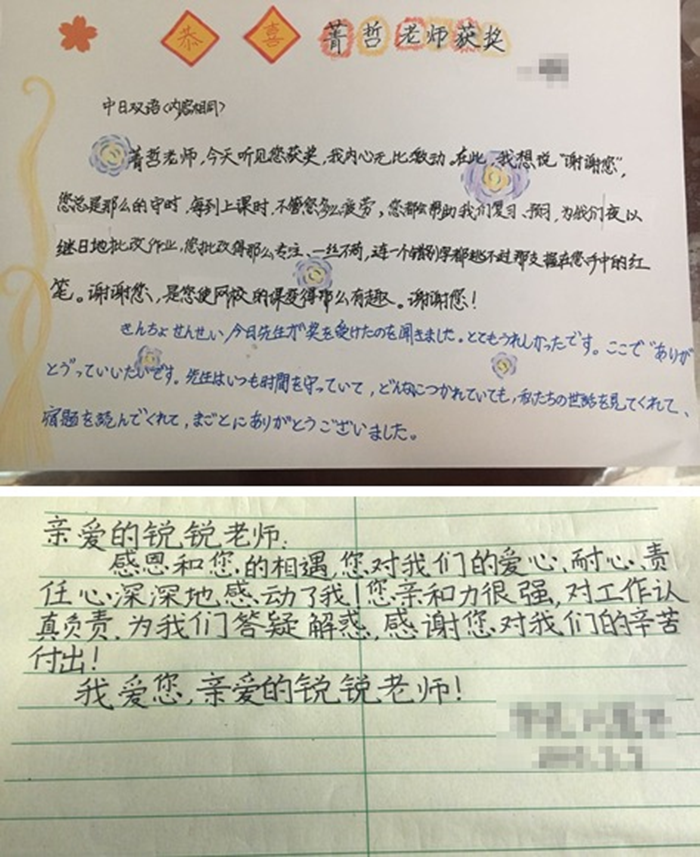 恭喜菁哲老师获奖
中日双语(内容相同)
菁哲老师,今天听见您获奖,我内心无比激动。在此,我想说“谢谢您”,
您总是那么的守时,每到上课时,不管您多么疲劳,您都会帮助我们复习、预习,为我们夜以
继日地批改作业,您批改得那么专注、一丝不苟,连一个错别字都逃不过那支握在您手中的红
笔。谢谢您,是您使网校的课变得那么有趣。谢谢您!
きんちょせんせい,今日先任が奖を受けたのを聞きました。とてもうれしかったです。ここで“ありが
とうっていいたいです。先任はいつも時間を守っていて,どんなにつかれていても,私たちの世話を見てくれて、
宿题を読んでくれて,まごとにありがとうございました。
亲爱的锐锐老师:
感恩和您的相遇,您对我们的爱心、耐心、责
任心深深地感动了我!您亲和力很强,对工作认
真负责,为我们答疑解惑,感谢您对我们的辛苦
付出!
我爱您,亲爱的锐锐老师!